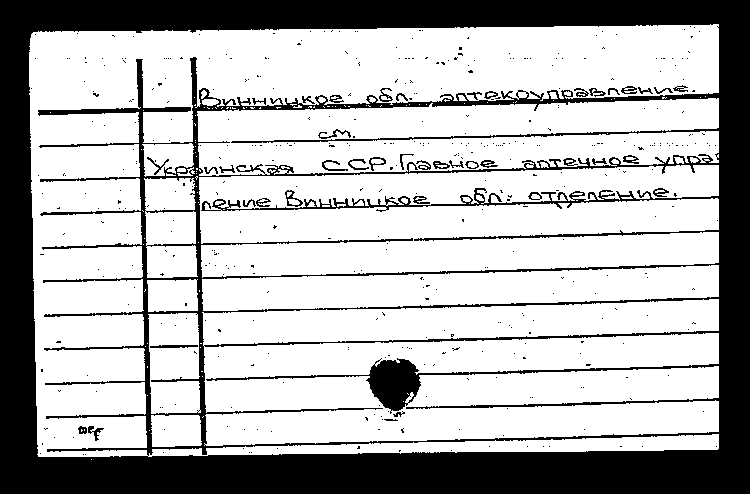 Винницкое обл. аптекоуправление.
см.
Украинская ССР. Главное аптечное управ
ление. Винницкое обл. отделение.